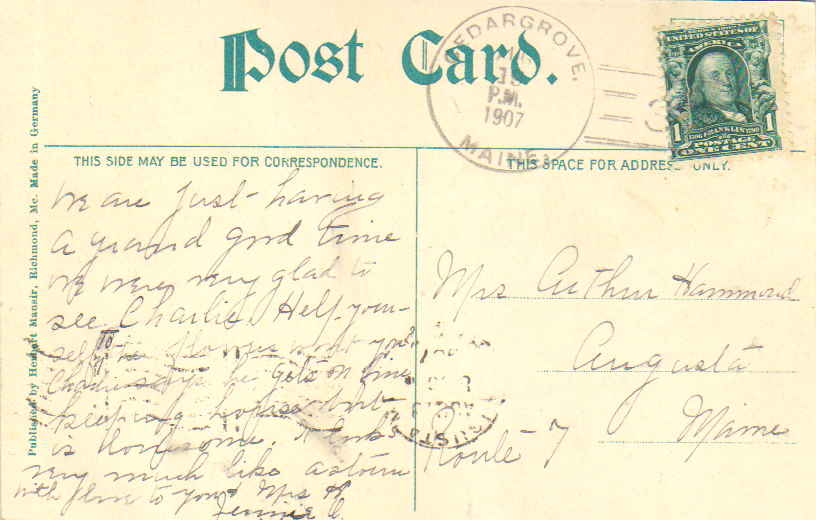 Post Card.
CEDARGROVE,
15
P.M.
1907
MAINE.
UNITED STATES OF
AMERICA
1
FRANKLIN
POSTAGE
ONE CENT
THIS SIDE MAY BE USED FOR CORRESPONDENCE.
THIS SPACE FOR ADDRESS ONLY.
Published by Herbert Manair, Richmond, Me. Made in Germany
We are just having
a grand good time
we were very glad to
see Charlie. Help your-
self to flowers wont you?
Charlie says he gets on fine
keeping house but
is lonesome. It looks
very much like a storm
with love to you Mrs H
Jennie C.
Mrs Arthur Hammond
Augusta
Maine
Route 7
AUGUSTA